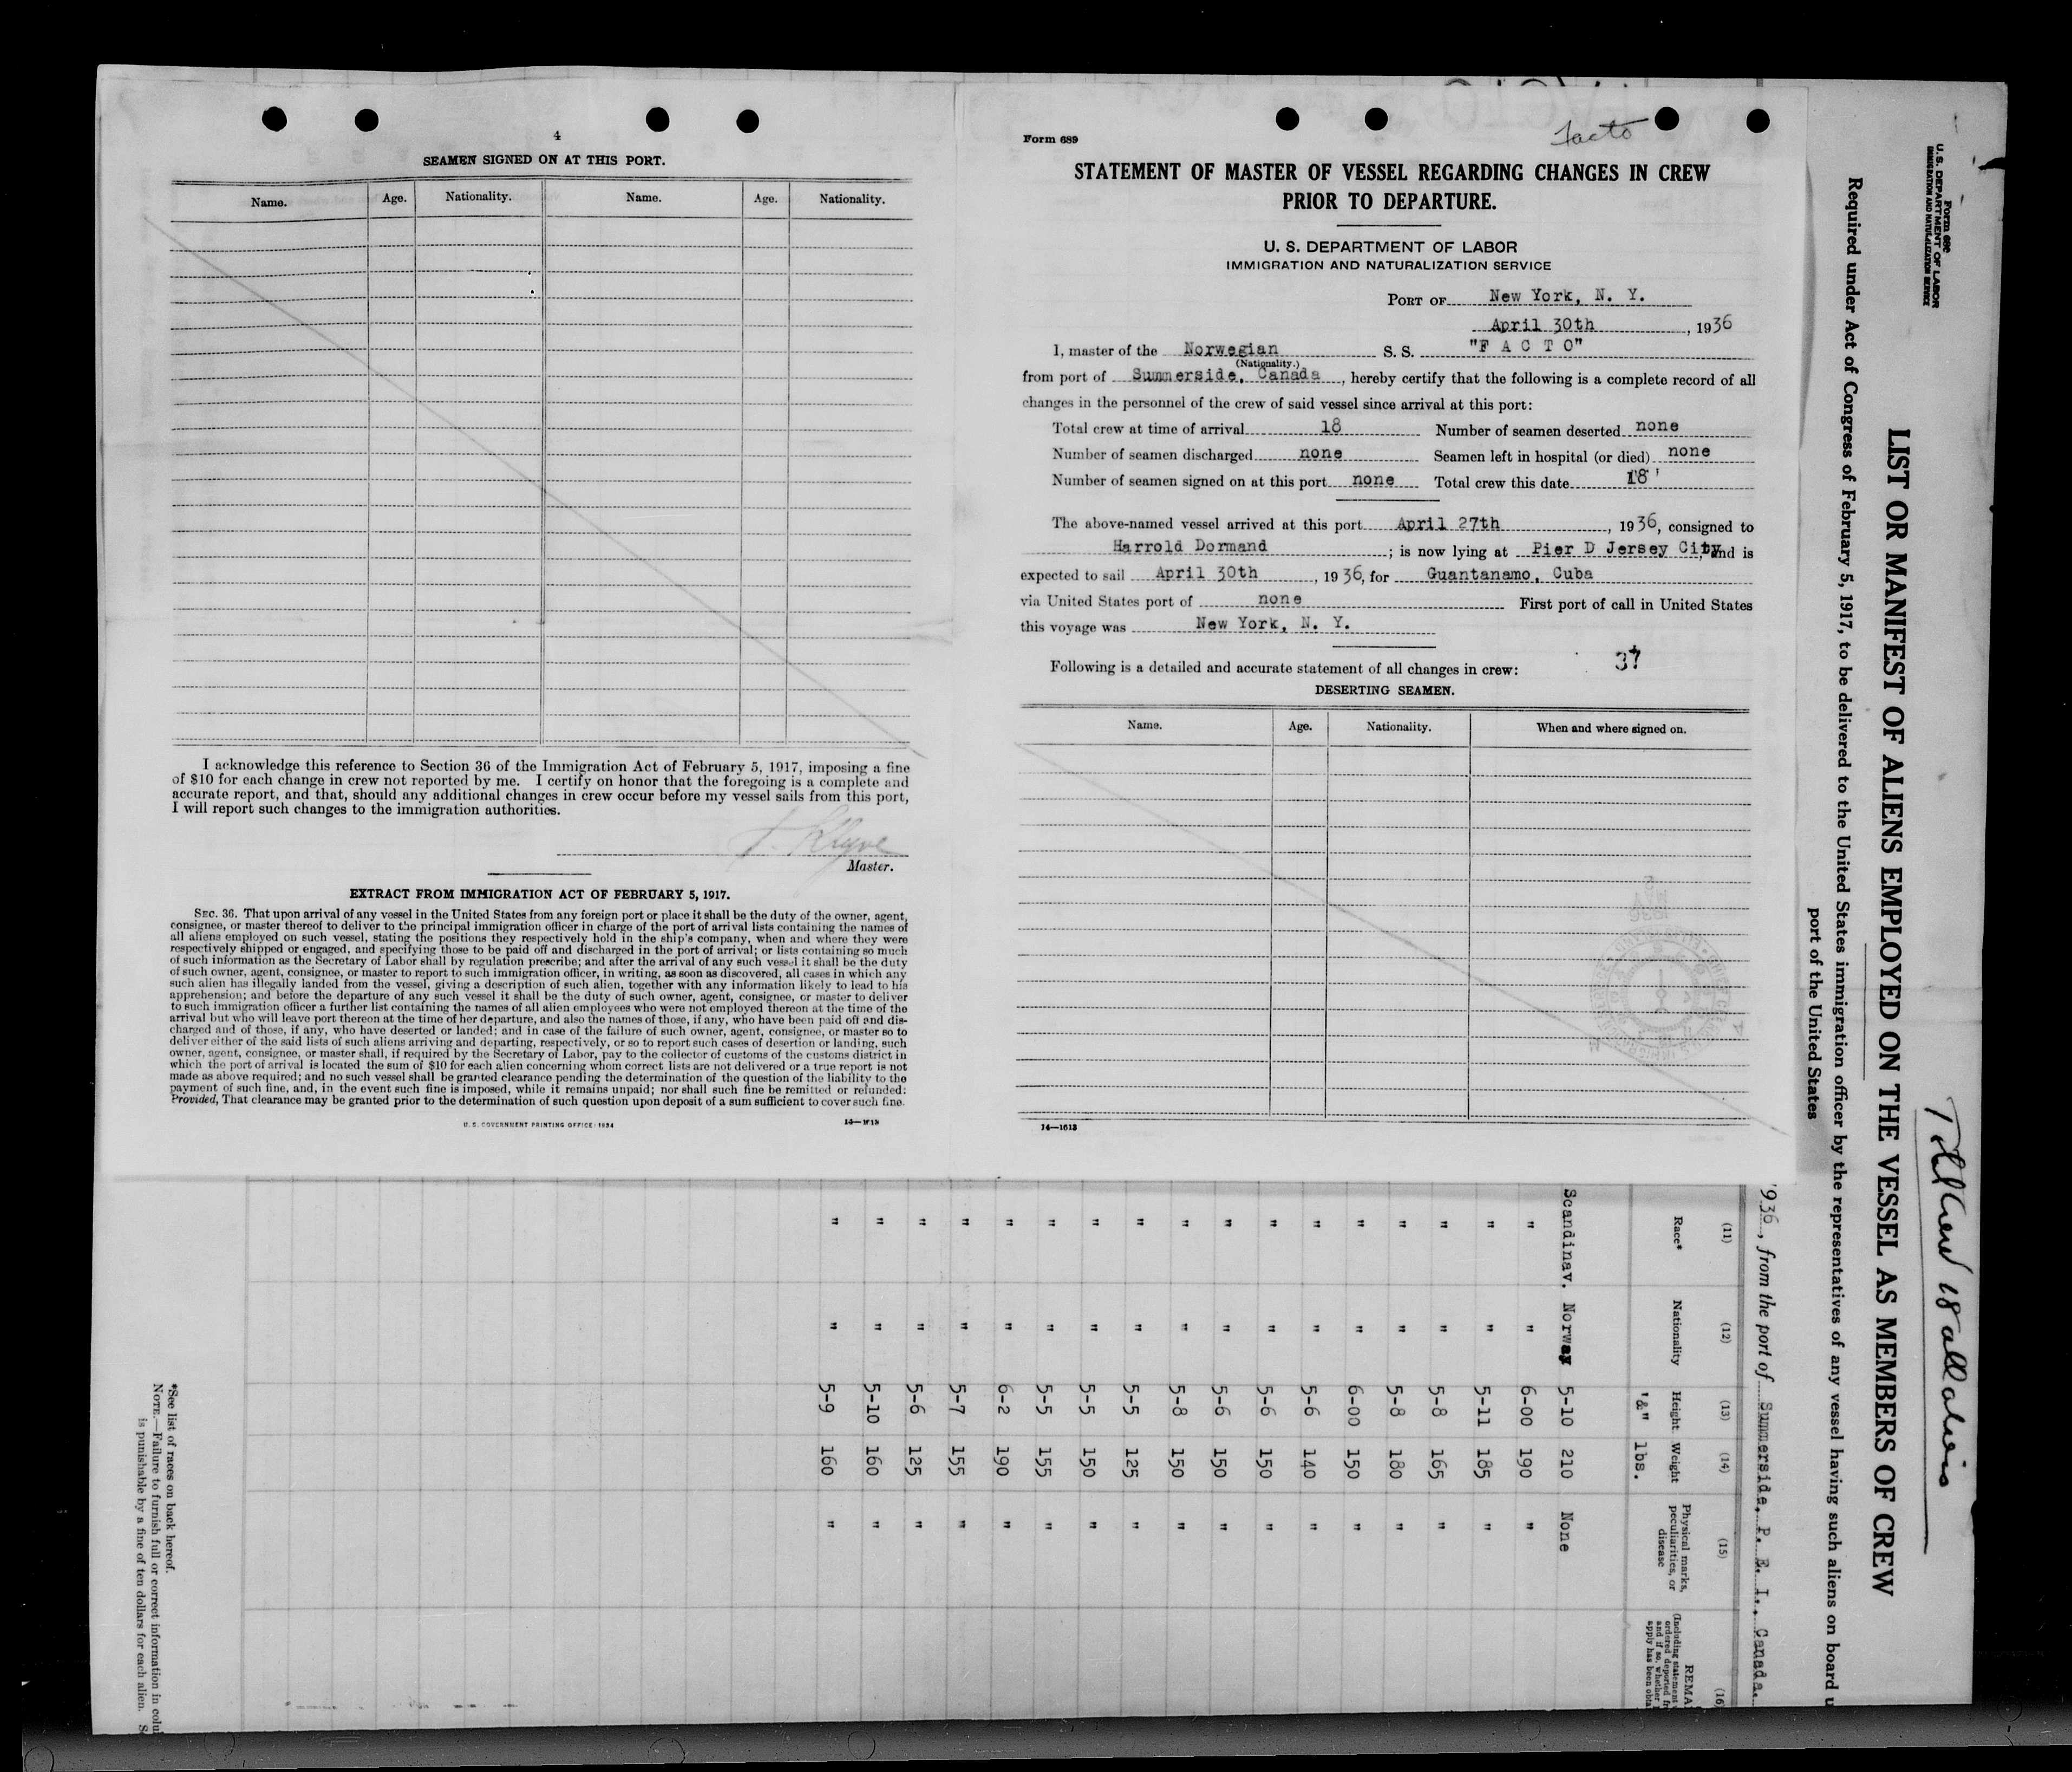 4
SEAMEN SIGNED ON AT THIS PORT.
Name. Age. Nationality. Name. Age. Nationality.
I acknowledge this reference to Section 36 of the Immigration Act of February 5, 1917, imposing a fine
of $10 for each change in crew not reported by me. I certify on honor that the foregoing is a complete and
accurate report, and that, should any additional changes in crew occur before my vessel sails from this port,
I will report such changes to the immigration authorities.
Master.
EXTRACT FROM IMMIGRATION ACT OF FEBRUARY 5, 1917.
SEC. 36. That upon arrival of any vessel in the United States from any foreign port or place it shall be the duty of the owner, agent,
consignee, or master thereof to deliver to the principal immigration officer in charge of the port of arrival lists containing the names of
all aliens employed on such vessel, stating the positions they respectively hold in the ship's company, when and where they were
respectively shipped or engaged, and specifying those to be paid off and discharged in the port of arrival; or lists containing so much
of such information as the Secretary of Labor shall by regulation prescribe; and after the arrival of any such vessel it shall be the duty
of such owner, agent, consignee, or master to report to such immigration officer, in writing, as soon as discovered, all cases in which any
such alien has illegally landed from the vessel, giving a description of such alien, together with any information likely to lead to his
apprehension; and before the departure of any such vessel it shall be the duty of such owner, agent, consignee, or master to deliver
to such immigration officer a further list containing the names of all alien employees who were not employed thereon at the time of the
arrival but who will leave port thereon at the time of her departure, and also the names of those, if any, who have been paid off and dis-
charged and of those, if any, who have deserted or landed; and in case of the failure of such owner, agent, consignee, or master so to
deliver either of the said lists of such aliens arriving and departing, respectively, or so to report such cases of desertion or landing, such
owner, agent, consignee, or master shall, if required by the Secretary of Labor, pay to the collector of customs of the customs district in
which the port of arrival is located the sum of $10 for each alien concerning whom correct lists are not delivered or a true report is not
made as above required; and no such vessel shall be granted clearance pending the determination of the question of the liability to the
payment of such fine, and, in the event such fine is imposed, while it remains unpaid; nor shall such fine be remitted or refunded:
Provided, That clearance may be granted prior to the determination of such question upon deposit of a sum sufficient to cover such fine.
U. S. GOVERNMENT PRINTING OFFICE: 1934 14—1613
Form 689
Facto
STATEMENT OF MASTER OF VESSEL REGARDING CHANGES IN CREW
PRIOR TO DEPARTURE.
U. S. DEPARTMENT OF LABOR
IMMIGRATION AND NATURALIZATION SERVICE
PORT OF New York, N. Y.
April 30th, 1936
I, master of the Norwegian S. S. "F A C T O"
(Nationality.)
from port of Summerside, Canada, hereby certify that the following is a complete record of all
changes in the personnel of the crew of said vessel since arrival at this port:
Total crew at time of arrival 18 Number of seamen deserted none
Number of seamen discharged none Seamen left in hospital (or died) none
Number of seamen signed on at this port none Total crew this date 18
The above-named vessel arrived at this port April 27th, 1936, consigned to
Harrold Dormand; is now lying at Pier D Jersey City, and is
expected to sail April 30th, 1936, for Guantanamo, Cuba
via United States port of none First port of call in United States
this voyage was New York, N. Y.
37
Following is a detailed and accurate statement of all changes in crew:
DESERTING SEAMEN.
Name. Age. Nationality. When and where signed on.
14—1613
Form 680
U. S. DEPARTMENT OF LABOR
IMMIGRATION AND NATURALIZATION SERVICE
Total Crew 18 all aliens
LIST OR MANIFEST OF ALIENS EMPLOYED ON THE VESSEL AS MEMBERS OF CREW
Required under Act of Congress of February 5, 1917, to be delivered to the United States immigration officer by the representatives of any vessel having such aliens on board u
port of the United States
1936, from the port of Summerside, P. E. I., Canada.
(11) (12) (13) (14) (15) (16)
Race* Nationality Height Weight Physical marks, peculiarities, or disease REMA
'&" lbs.
Scandinav. Norway 5-10 210 None
" " 6-00 190 "
" " 5-11 185 "
" " 5-8 165 "
" " 5-8 180 "
" " 6-00 150 "
" " 5-6 140 "
" " 5-6 150 "
" " 5-6 150 "
" " 5-8 150 "
" " 5-5 125 "
" " 5-5 150 "
" " 5-5 155 "
" " 6-2 190 "
" " 5-7 155 "
" " 5-6 125 "
" " 5-10 160 "
" " 5-9 160 "
*See list of races on back hereof.
NOTE.—Failure to furnish full or correct information in colu
is punishable by a fine of ten dollars for each alien. S